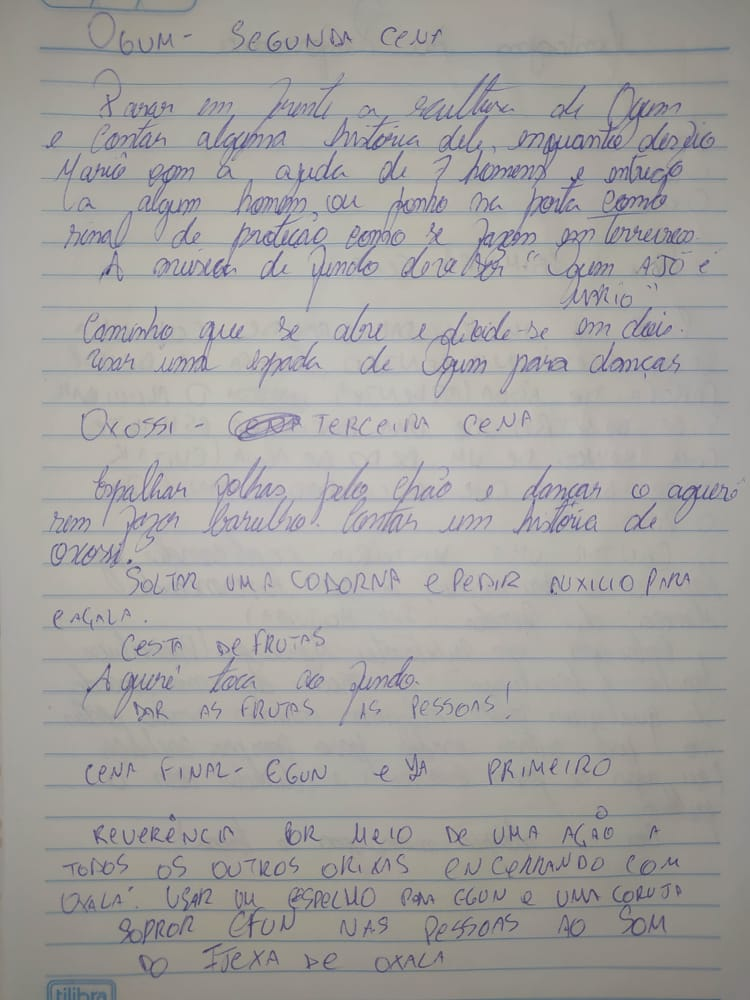 OGUM - SEGUNDA CENA
Parar em frente a escultura de Ogum
e contar alguma história dele, enquanto desfio
Mariô com a ajuda de 7 homens e entrego
a algum homem, ou ponho na porta como
sinal de proteção como se fazem em terreiros.
A música de fundo deve ser "Ogum AJÔ é
MARIO"
Caminho que se abre e divide-se em dois.
usar uma espada de Ogum para danças
OXOSSI - TERCEIRA CENA
Espalhar folhas pelo chão e dançar o agueré
sem fazer barulho. Contar um história de
oxossi.
SOLTAR UMA CODORNA E PEDIR AUXICIO PARA
CAÇALA.
CESTA DE FRUTAS
Agueré toca ao fundo.
DAR AS FRUTAS AS PESSOAS!
CENA FINAL - EGUN e YA PRIMEIRO
REVERÊNCIA POR MEIO DE UMA AÇÃO A
TODOS OS OUTROS ORIXAS ENCERRANDO COM
OXALÁ. USAR UM ESPELHO PARA EGUN E UMA CORUJA
SOPROR EFUN NAS PESSOAS AO SOM
DO IJEXA DE OXALA
tilibra